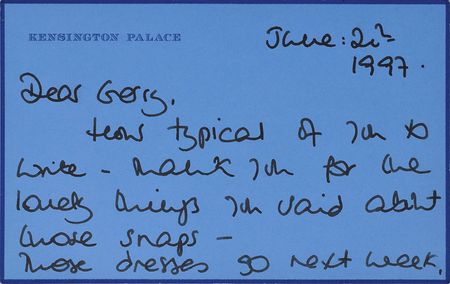 KENSINGTON PALACE
June: 2nd
1997.
Dear Gerry,
How typical of you to
write - thank you for the
lovely things you said about
those snaps -
Those dresses go next week.